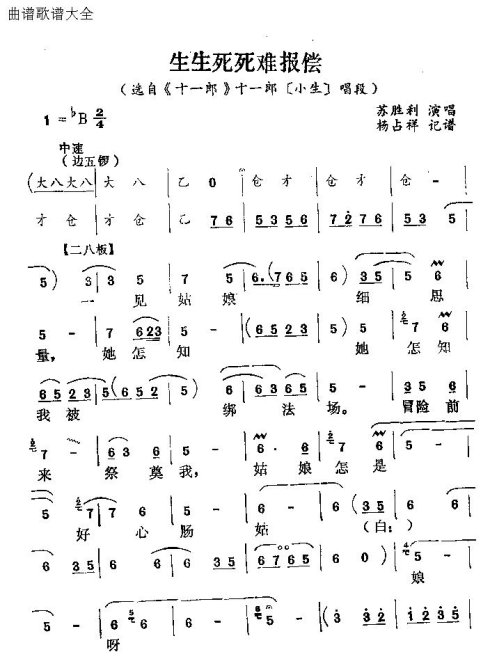 曲谱歌谱大全
生生死死难报偿
（选自《十一郎》十一郎〔小生〕唱段）
苏胜利 演唱
1 = ♭B 2/4
杨占祥 记谱
中速
（边五锣）
(大八大八 | 大 八 | 乙 0 | 仓 才 | 仓 才 | 仓 - |
才 仓 | 才 仓 | 乙 7 6 | 5 3 5 6 | 7 2 7 6 | 5 3 5 |
【二八板】
5) 3 | 3 5 | 7 5 | 6. (7 6 5 | 6) 3 5 | 5 6 |
一 见 姑 娘 细 思
5 - | 7 6 2 3 | 5 - | (6 5 2 3 | 5) 7 | 7 6 |
量， 她 怎 知 她 怎 知
6 5 2 3 | 5 (6 5 2 | 5) 6 | 6 3 6 5 | 5 - | 3 5 6 |
我 被 绑 法 场。 冒险 前
7 - | 6 3 | 6 3 5 | 6 · 6 | 2 2 | 5 - |
来 祭 奠 我， 姑 娘 怎 是
5 7 | 7 6 | 5 6 | 6 - | 6 (3 5 | 6 - |
好 心 肠 姑 （白：）
6 · 6 | 6 3 5 | 6 7 6 5 | 6 0 ) | 5 - | 5 - |
娘
5 - | 6 - | 6 - | 6 (3 | 3 3 2 | 3 3 |
呀